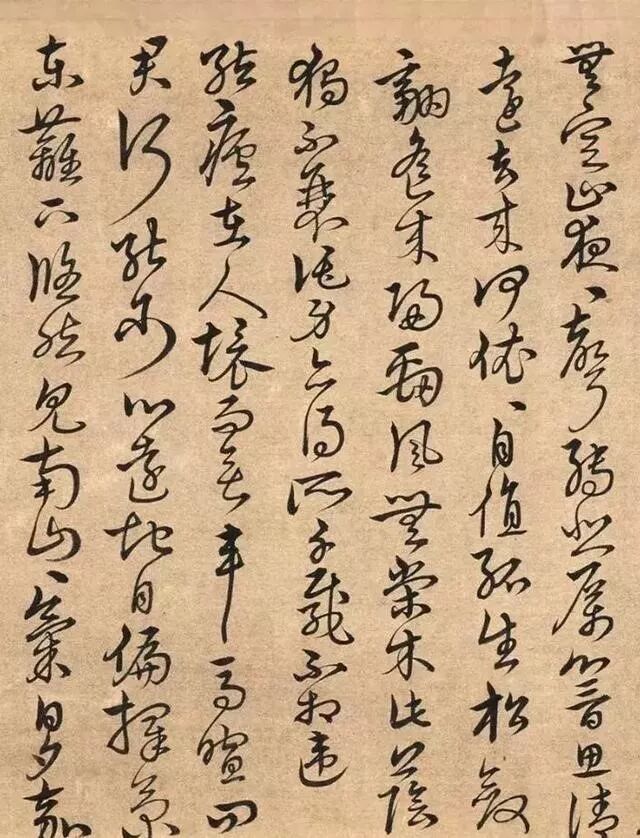 無定止夜、聲轉悲厲響思清
遠去來何依、自值孤生松斂
翮遙來歸勁風無榮木此蔭
獨不衰託身已得所千載不相違
結廬在人境而無車馬喧問
君何能爾心遠地自偏採菊
東籬下悠然見南山、氣日夕嘉